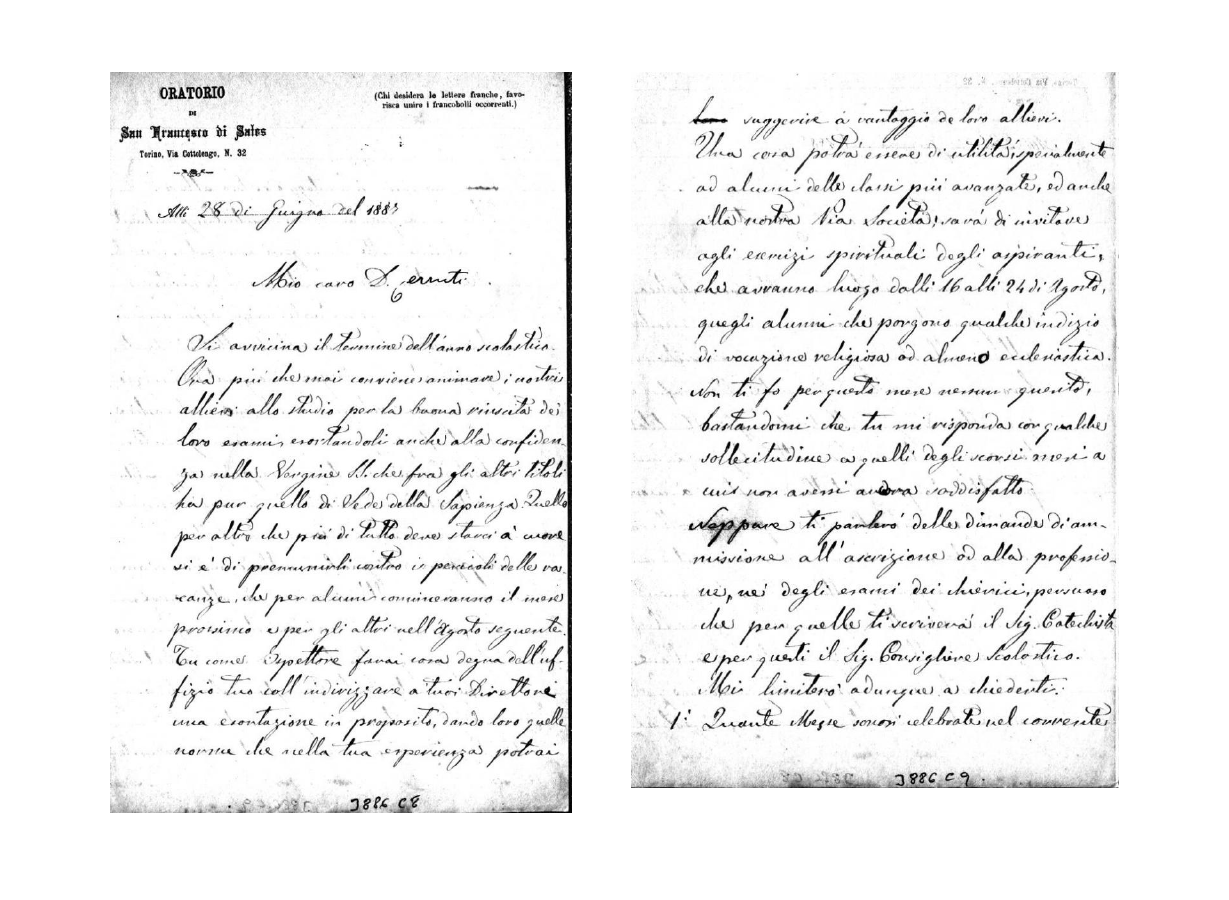 ORATORIO
DI
San Francesco di Sales
Torino, Via Cottolengo, N. 32
(Chi desidera le lettere franche, favo-
risca unire i francobolli occorrenti.)
Alli 28 di Guigno del 1883
Mio caro D. Cerruti
Si avvicina il termine dell'anno scolastico.
Ora più che mai conviene animare i nostri
allievi allo studio per la buona riuscita dei
loro esami esortandoli anche alla confiden-
za nella Vergine SS. che fra gli altri titoli
ha pur quello di Sede della Sapienza. Quello
per altro che più di tutto deve starci à cuore
si è di premunirli contro i pericoli delle va-
canze, che per alcuni comincieranno il mese
prossimo e per gli altri nell'Agosto seguente.
Tu come Ispettore farai cosa degna dell'uf-
fizio tuo coll'indirizzare a tuoi Direttori
una esortazione in proposito, dando loro quelle
norme che nella tua esperienza potrai
J886 C8
suggerire à vantaggio de loro allievi.
Una cosa potrà essere di utilità, specialmente
ad alunni delle classi più avanzate, ed anche
alla nostra Pia Società, sarà di invitare
agli esercizi spirituali degli aspiranti,
che avranno luogo dalli 16 alli 24 di Agosto,
quegli alunni che porgono qualche indizio
di vocazione religiosa od almeno ecclesiastica.
Non ti fo per questo mese nessun quesito,
bastandomi che tu mi risponda con qualche
sollecitudine a quelli degli scorsi mesi a
cui non avessi ancora soddisfatto.
Neppure ti parlerò delle dimande di am-
missione all'ascrizione od alla professio-
ne, nè degli esami dei chierici, persuaso
che per quelle ti scriverà il Sig. Catechista
e per questi il Sig. Consigliere Scolastico.
Mi limiterò adunque a chiederti:
1° Quante Messe sonosi celebrate nel corrente
J886 C9.